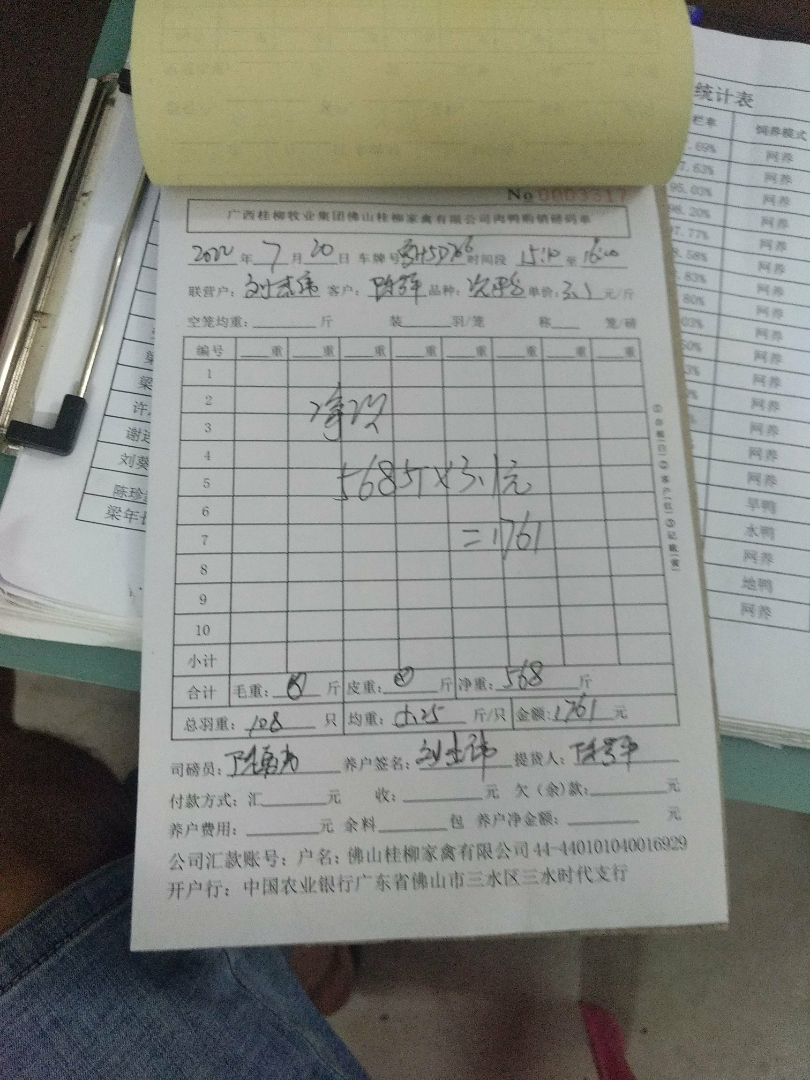 统计表
栏率 饲养模式
.69% 网养
7.63% 网养
95.03% 网养
98.20% 网养
97.77% 网养
.58% 网养
.83% 网养
80% 网养
03% 网养
50% 网养
3% 网养
网养
网养
早鸭
水鸭
网养
地鸭
网养
梁
梁
许
谢
刘葵
陈珍
梁年
No 0003317
广西桂柳牧业集团佛山桂柳家禽有限公司肉鸭购销磅码单
2022年7月20日 车牌号 时间段 15:10 至 16:00
联营户： 客户： 品种： 单价：3.1元/斤
空笼均重：____斤 装____羽/笼 称____笼/磅
编号 __重 __重 __重 __重 __重 __重 __重 __重
1
2
3
净重
4
5
568斤×3.1元
6
7
=1761
8
9
10
小计
合计 毛重：0斤 皮重：0斤 净重：568斤
总羽重：128只 均重： 斤/只 金额：1761元
司磅员： 养户签名： 提货人：
付款方式：汇____元 收：____元 欠（余）款：____元
养户费用：____元 余料____包 养户净金额：____元
公司汇款账号：户名：佛山桂柳家禽有限公司 44-440101040016929
开户行：中国农业银行广东省佛山市三水区三水时代支行
①存根(白)②客户(红)③记账(黄)